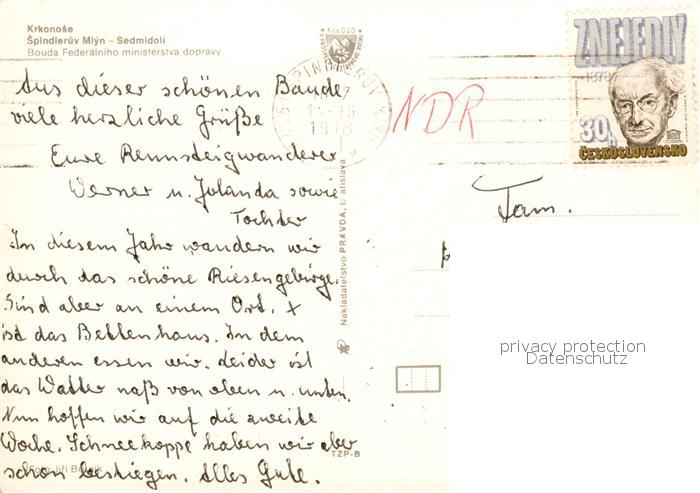 Krkonoše
Špindlerův Mlýn – Sedmidolí
Bouda Federálního ministerstva dopravy
Kčs 0,20
Aus dieser schönen Baude
viele herzliche Grüße
Eure Rennsteigwanderer
Werner u. Jolanda sowie
Tochter
In diesem Jahr wandern wir
durch das schöne Riesengebirge.
Sind aber an einem Ort. x
ist das Bettenhaus. In dem
anderen essen wir. Leider ist
das Wetter naß von oben u. unten.
Nun hoffen wir auf die zweite
Woche. Schneekoppe haben wir aber
schon bestiegen. Alles Gute.
Foto Jiří
TZP-B
Nakladatelstvo PRAVDA, Bratislava
1978
NDR
Z NEJEDLÝ
1978
30h
unesco
ČESKOSLOVENSKO
Fam.
privacy protection
Datenschutz